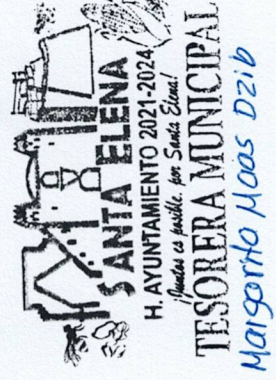 SANTA ELENA
H. AYUNTAMIENTO 2021-2024
¡Juntos es posible, por Santa Elena!
TESORERA MUNICIPAL
Margarita Moas Dzib